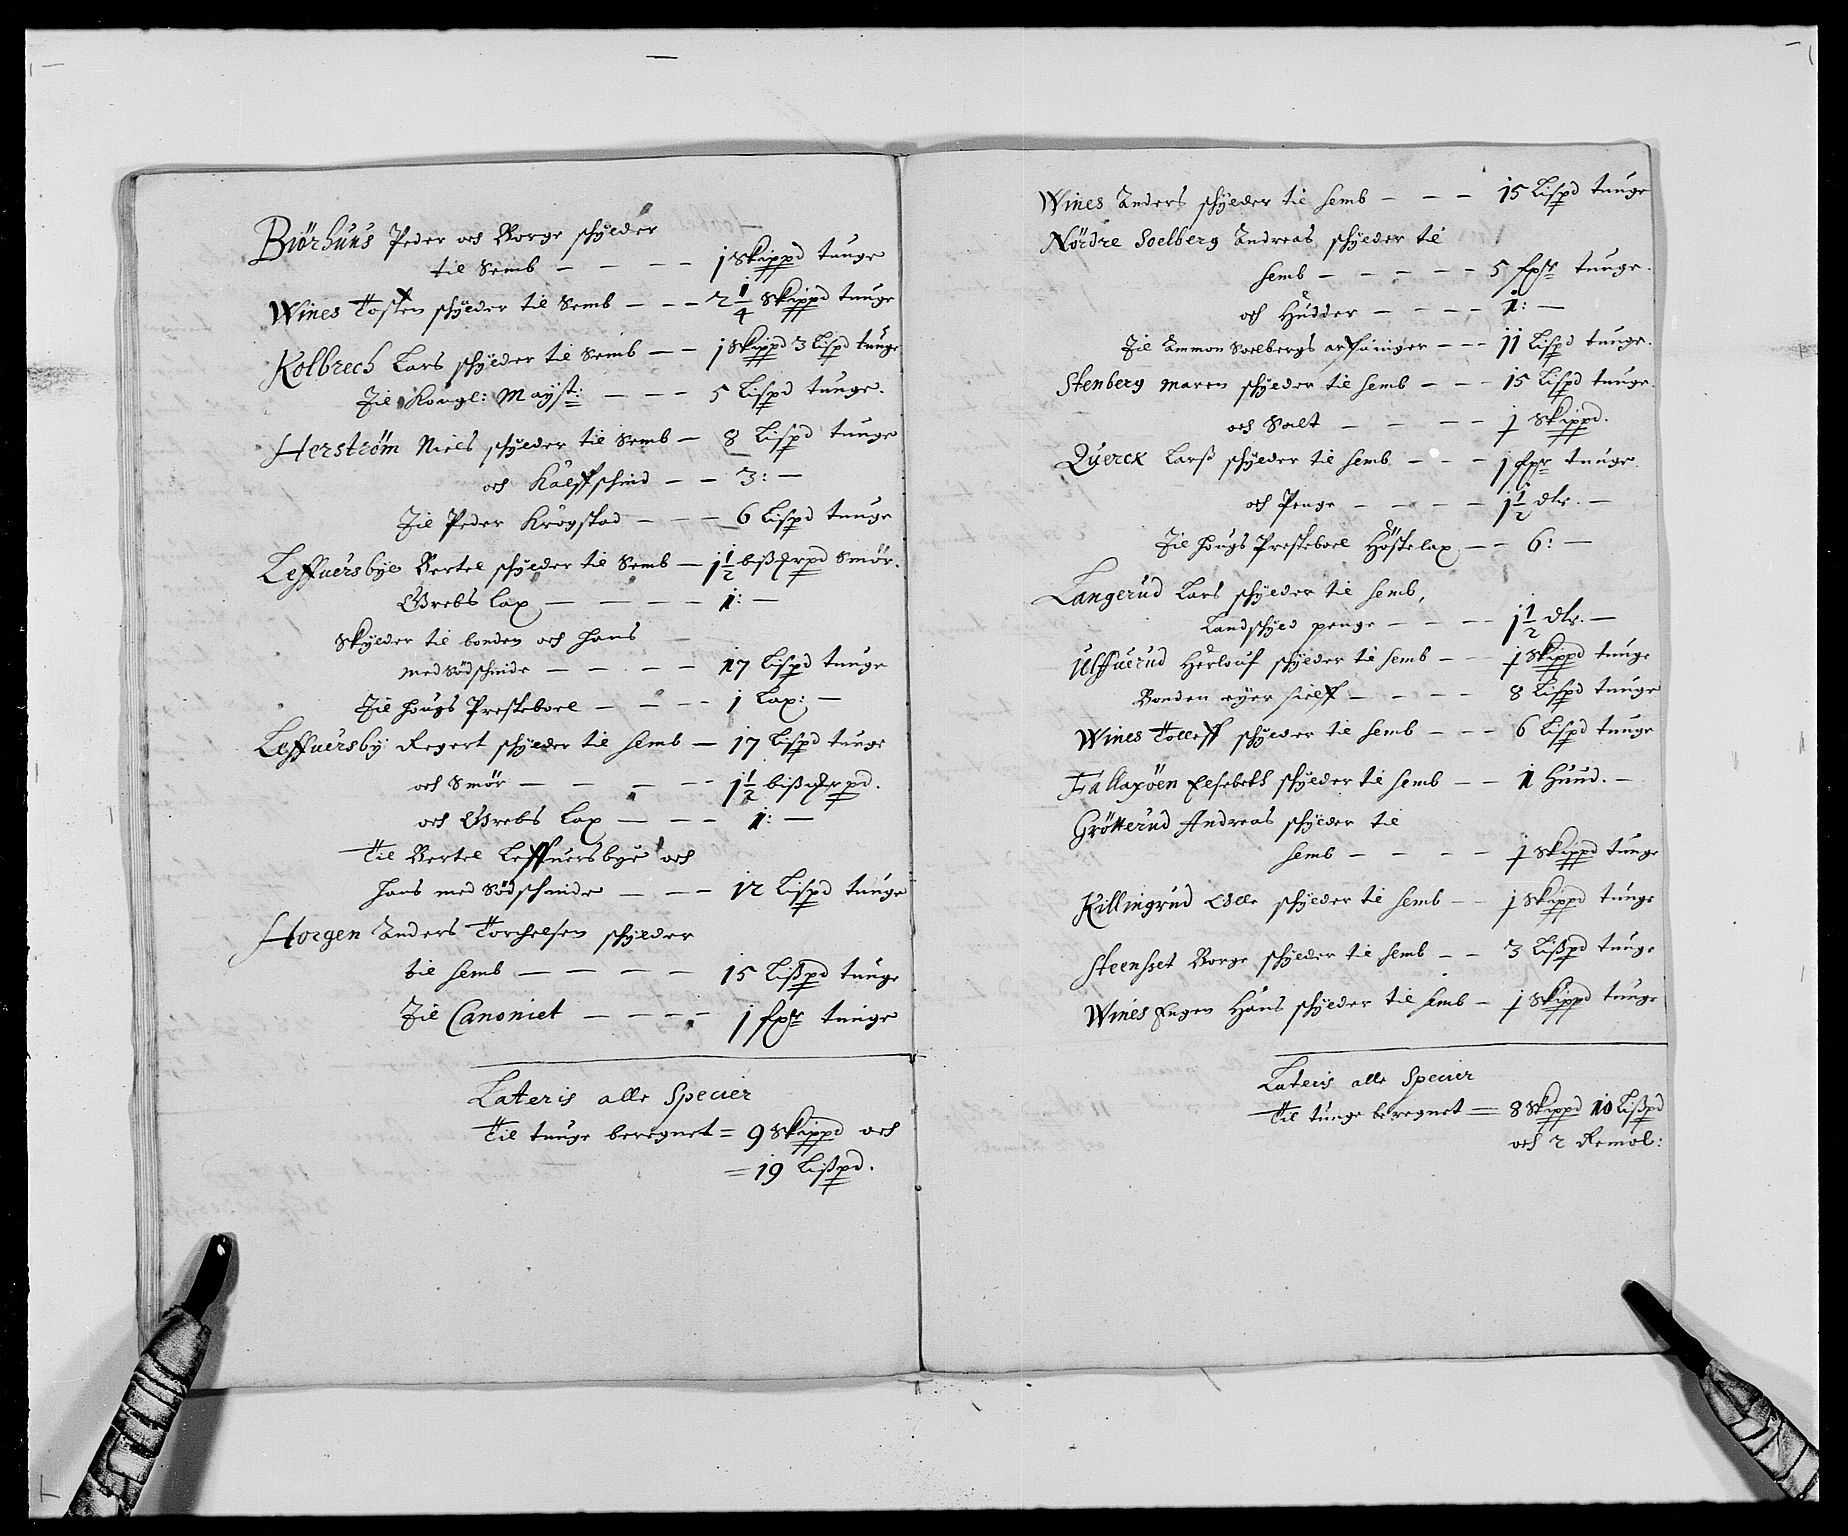 Biörhuus Peder och Borge schylder
til Semb — — — — 1 Skippd tunge
Wines Tosten schylder til Semb — — — 2 1/4 Skippd tunge
Kolbrech Lars schylder til Semb — — 1 Skippd 3 Lispd tunge
Til Kongl: Mayst: — — — 5 Lispd tunge.
Herström Niels schylder til Semb — 8 Lispd tunge
och Kalffschind — — 3: —
Til Peder Krogstad — — — 6 Lispd tunge
Leffuersbye Bertel schylder til Semb — 1 1/2 bißmrpd Smör.
Grebs Lax — — — — 1: —
Skylder til bonden och hans
med Södschinde — — — — 17 Lispd tunge
Til Hougs Presteboel — — — 1 Lax: —
Leffuersby Regert schylder til Semb — 17 Lispd tunge
och Smör — — — — 1 1/2 bißmrpd.
och Grebs Lax — — — 1: —
Til Bertel Leffuersbye och
hans med Södschinde — — — 12 Lispd tunge
Horgen Anders Torchelsen schylder
til Semb — — — — 15 Lißpd tunge
Til Canoniet — — — — 1 fxr tunge
Lateris alle Specier
Til tunge beregnet = 9 Skippd och
= 19 Lißpd.
Wines Anders schylder til Semb — — — 15 Lispd tunge
Nördre Soelberg Andreas schylder til
Semb — — — — — 5 fxr tunge.
och Hudder — — — — 1: —
Til Ammon Soelbergs arffuinger — — — 11 Lispd tunge.
Stenberg Maren schylder til Semb — — — 15 Lispd tunge.
och Salt — — — — 1 Skippd.
Querck Larß schylder til Semb — — — 1 fxr tunge.
och Penge — — — — 1 1/2 dlr. —
Til Hougs Presteboel Höstelax — — 6: —
Langerud Lars schylder til Semb,
Landschyld penge — — — — 1 1/2 dlr. —
Ulffuerud Herlouf schylder til Semb — — 1 Skippd tunge
Bonden eyer sielff — — — — 8 Lispd tunge
Wines Tolleff schylder til Semb — — — 6 Lispd tunge
Fallaxöen Elsebeth schylder til Semb — — 1 Huud. —
Grötterud Andreas schylder til
Semb — — — — 1 Skippd tunge
Killingrud Olle schylder til Semb — — 1 Skippd tunge
Steenset Borge schylder til Semb — — 3 Lißpd tunge
Wines Engen Hans schylder til Semb — 1 Skippd tunge
Lateris alle Specier
Til tunge beregnet = 8 Skippd 10 Lißpd
och 2 Remol: